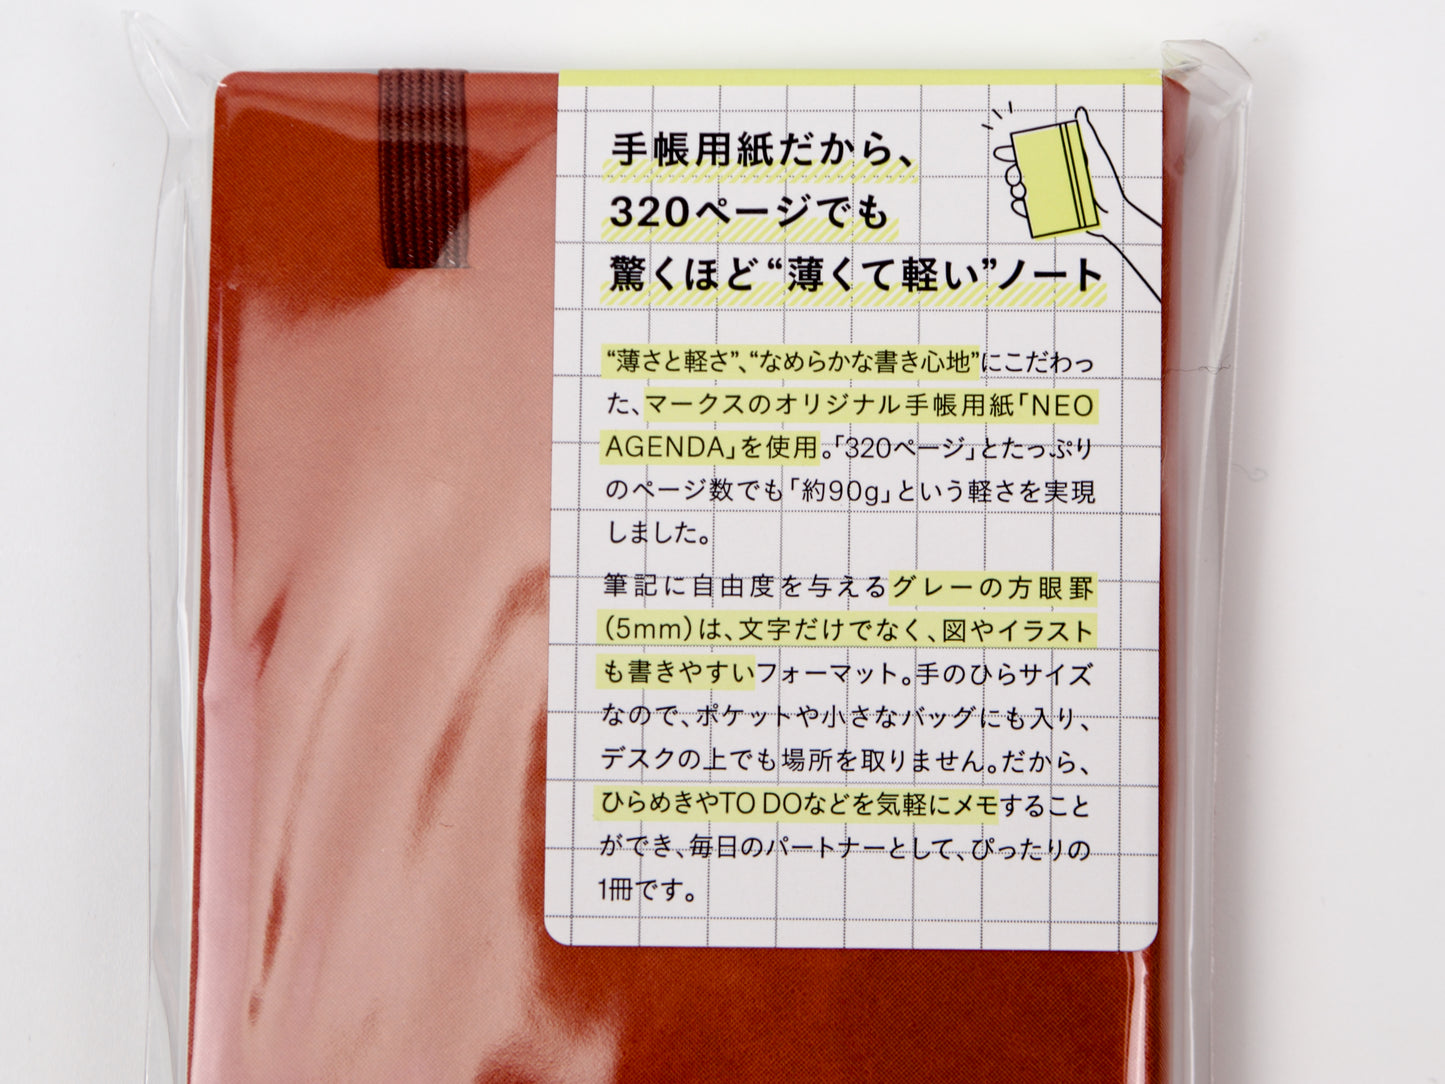 手帳用紙だから、
320ページでも
驚くほど“薄くて軽い”ノート
“薄さと軽さ”、“なめらかな書き心地”にこだわっ
た、マークスのオリジナル手帳用紙「NEO
AGENDA」を使用。「320ページ」とたっぷり
のページ数でも「約90g」という軽さを実現
しました。
筆記に自由度を与えるグレーの方眼罫
(5mm)は、文字だけでなく、図やイラスト
も書きやすいフォーマット。手のひらサイズ
なので、ポケットや小さなバッグにも入り、
デスクの上でも場所を取りません。だから、
ひらめきやTO DOなどを気軽にメモすること
ができ、毎日のパートナーとして、ぴったりの
1冊です。